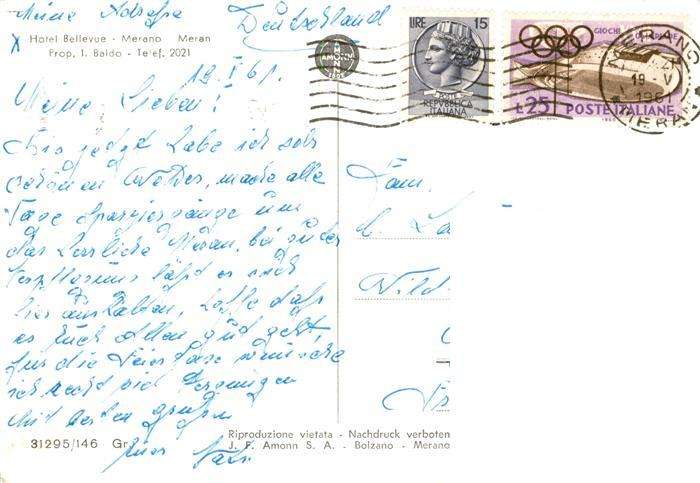 Meine Adresse
Deutschland
X Hotel Bellevue - Merano Meran
Prop. I. Baldo - Telef. 2021
19. V 61.
Meine Lieben!
Bis jetzt habe ich sehr
schönen Wetter, mache alle
Tage Spaziergänge um
das herrliche Meran, bei guter
Verpflegung läßt es sich
hier aushalten, hoffe daß
es Euch Allen gut geht,
für die Feiertage wünsche
ich recht viel Vergnügen
Mit besten Grüßen
Euer
Fam.
31295/146 Gr.
Riproduzione vietata - Nachdruck verboten
J. F. Amonn S. A. - Bolzano - Merano
AMONN
LIRE 15
POSTE
REPVBBLICA
ITALIANA
GIOCHI OLIMPICI
L.25 POSTE ITALIANE
1960
MERANO
19 V
1961